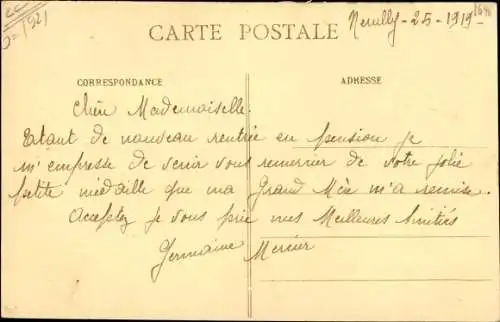 CARTE POSTALE
Neuilly - 25 - 1919 -
CORRESPONDANCE
ADRESSE
Chère Mademoiselle.
Etant de nouveau rentrée en pension je
m'empresse de venir vous remercier de votre jolie
petite médaille que ma Grand Mère m'a remise.
Acceptez je vous prie mes Meilleures Amitiés
Germaine Mercier